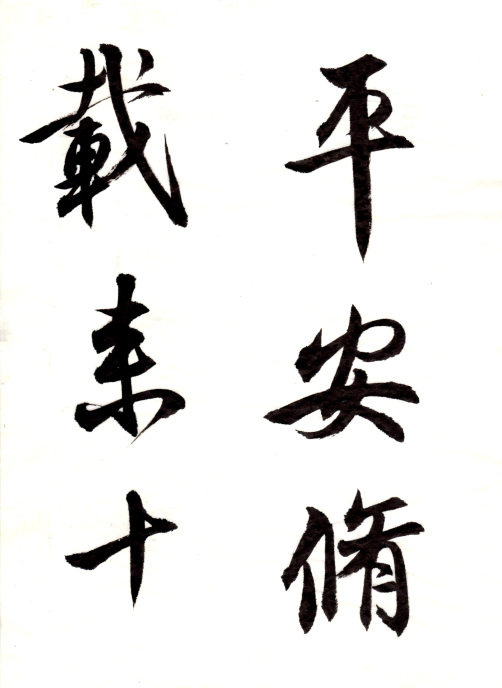 平安脩
載来十